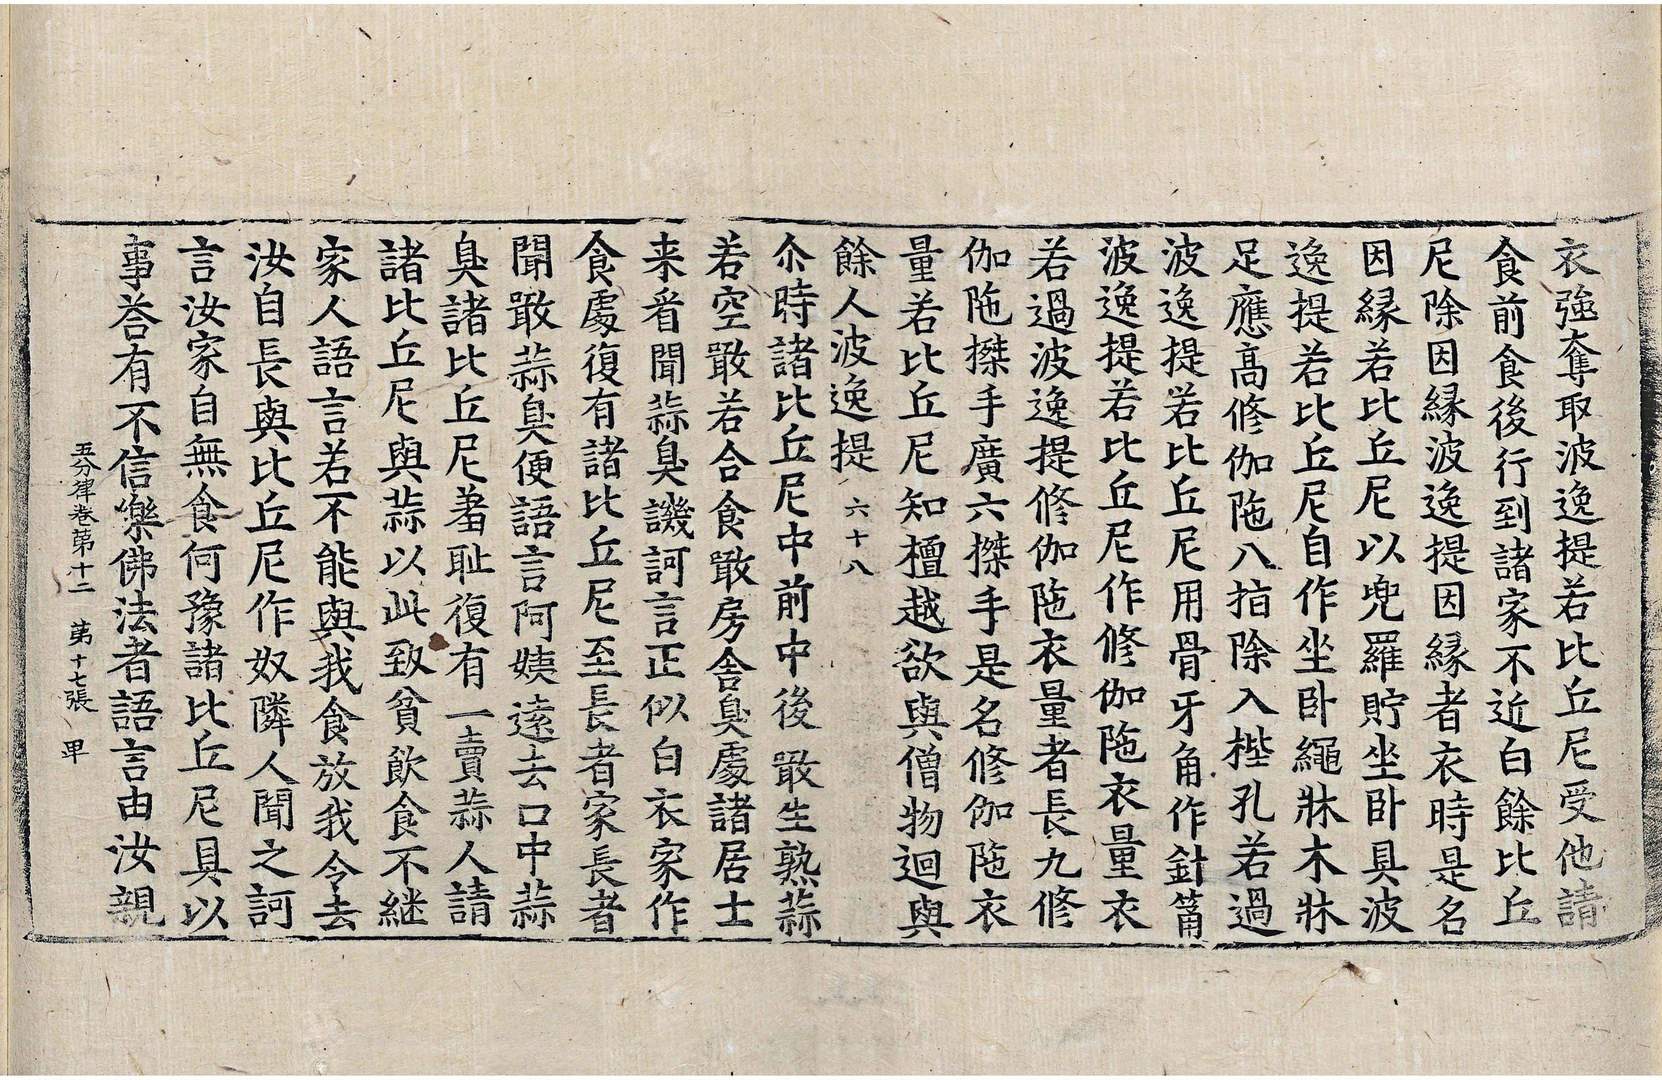 衣強奪取波逸提若比丘尼受他請
食前食後行到諸家不近白餘比丘
尼除因緣波逸提因緣者衣時是名
因緣若比丘尼以兜羅貯坐卧具波
逸提若比丘尼自作坐卧繩牀木牀
足應高修伽陁八指除入梐孔若過
波逸提若比丘尼用骨牙角作針筩
波逸提若比丘尼作修伽陁衣量衣
若過波逸提修伽陁衣量者長九修
伽陁搩手廣六搩手是名修伽陁衣
量若比丘尼知檀越欲與僧物迴與
餘人波逸提 六十八
尒時諸比丘尼中前中後噉生熟蒜
若空噉若合食噉房舍臭處諸居士
来看聞蒜臭譏訶言正似白衣家作
食處復有諸比丘尼至長者家長者
聞噉蒜臭便語言阿姨遠去口中蒜
臭諸比丘尼羞耻復有一賣蒜人請
諸比丘尼與蒜以此致貧飲食不継
家人語言若不能與我食放我令去
汝自長與比丘尼作奴隣人聞之訶
言汝家自無食何豫諸比丘尼具以
事荅有不信樂佛法者語言由汝親
五分律卷第十二 第十七張 甲